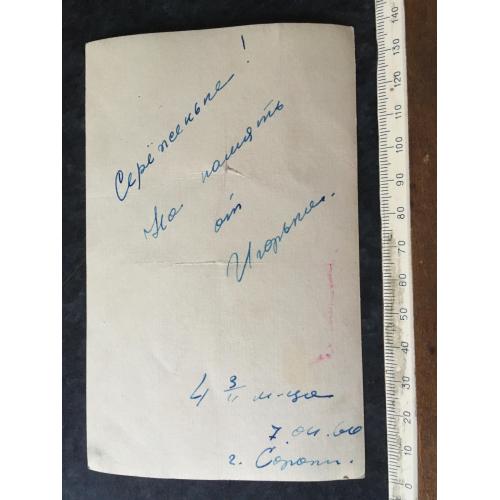 Серёженьке!
На память
от
Игорька.
4 3/4 м-ца
7.04.60
г. Сороки.
140
130
120
110
100
90
80
70
60
50
40
30
20
10